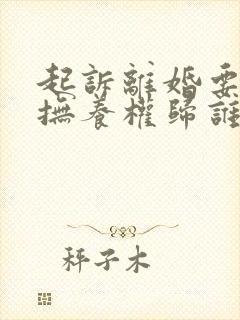 起訴離婚要
撫養權歸誰
秤子木